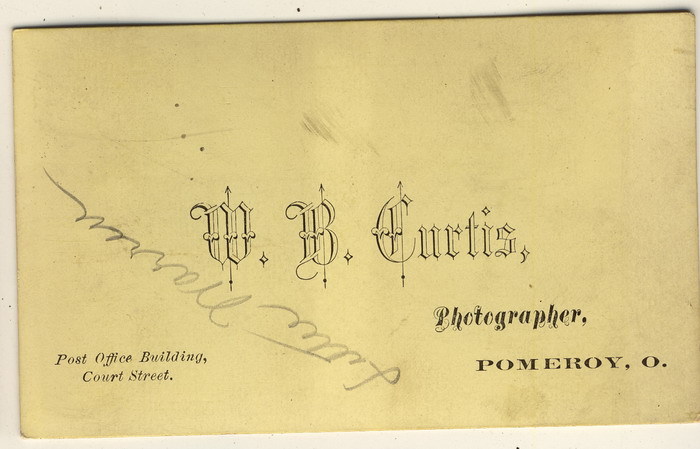 W. B. Curtis,
Photographer,
POMEROY, O.
Post Office Building,
Court Street.
Warren